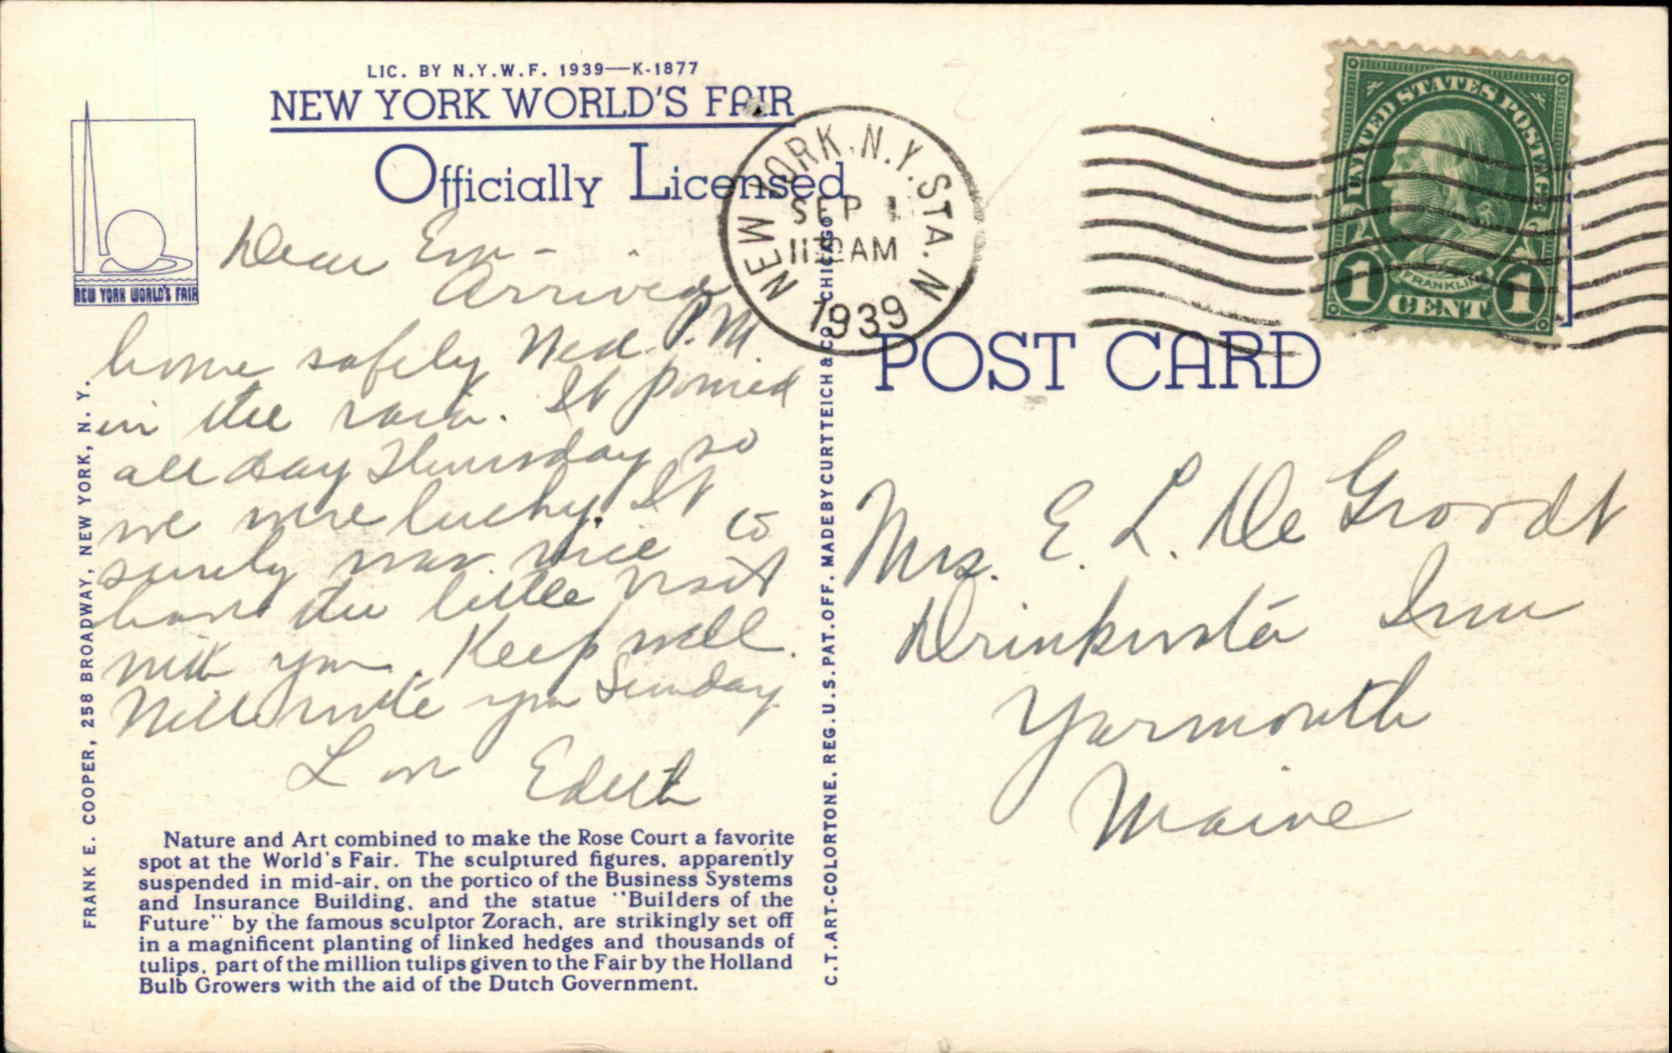 LIC. BY N.Y.W.F. 1939—K-1877
NEW YORK WORLD'S FAIR
Officially Licensed
NEW YORK WORLD'S FAIR
Dear Em -
Arrived
home safely Wed. P.M.
in the rain. It poured
all day Thursday so
we were lucky. It
surely was nice to
have the little visit
with you. Keep well.
Will write you Sunday
Love Edith
Nature and Art combined to make the Rose Court a favorite
spot at the World's Fair. The sculptured figures, apparently
suspended in mid-air, on the portico of the Business Systems
and Insurance Building, and the statue "Builders of the
Future" by the famous sculptor Zorach, are strikingly set off
in a magnificent planting of linked hedges and thousands of
tulips, part of the million tulips given to the Fair by the Holland
Bulb Growers with the aid of the Dutch Government.
FRANK E. COOPER, 258 BROADWAY, NEW YORK, N. Y.
C.T. ART-COLORTONE. REG. U.S. PAT. OFF. MADE BY CURT TEICH & CO. CHICAGO
NEW YORK, N.Y. STA. N
SEP 1
AM
1939
UNITED STATES POSTAGE
FRANKLIN
1 CENT 1
POST CARD
Mrs. E. L. De Groodt
Drinkwater Inn
Yarmouth
Maine